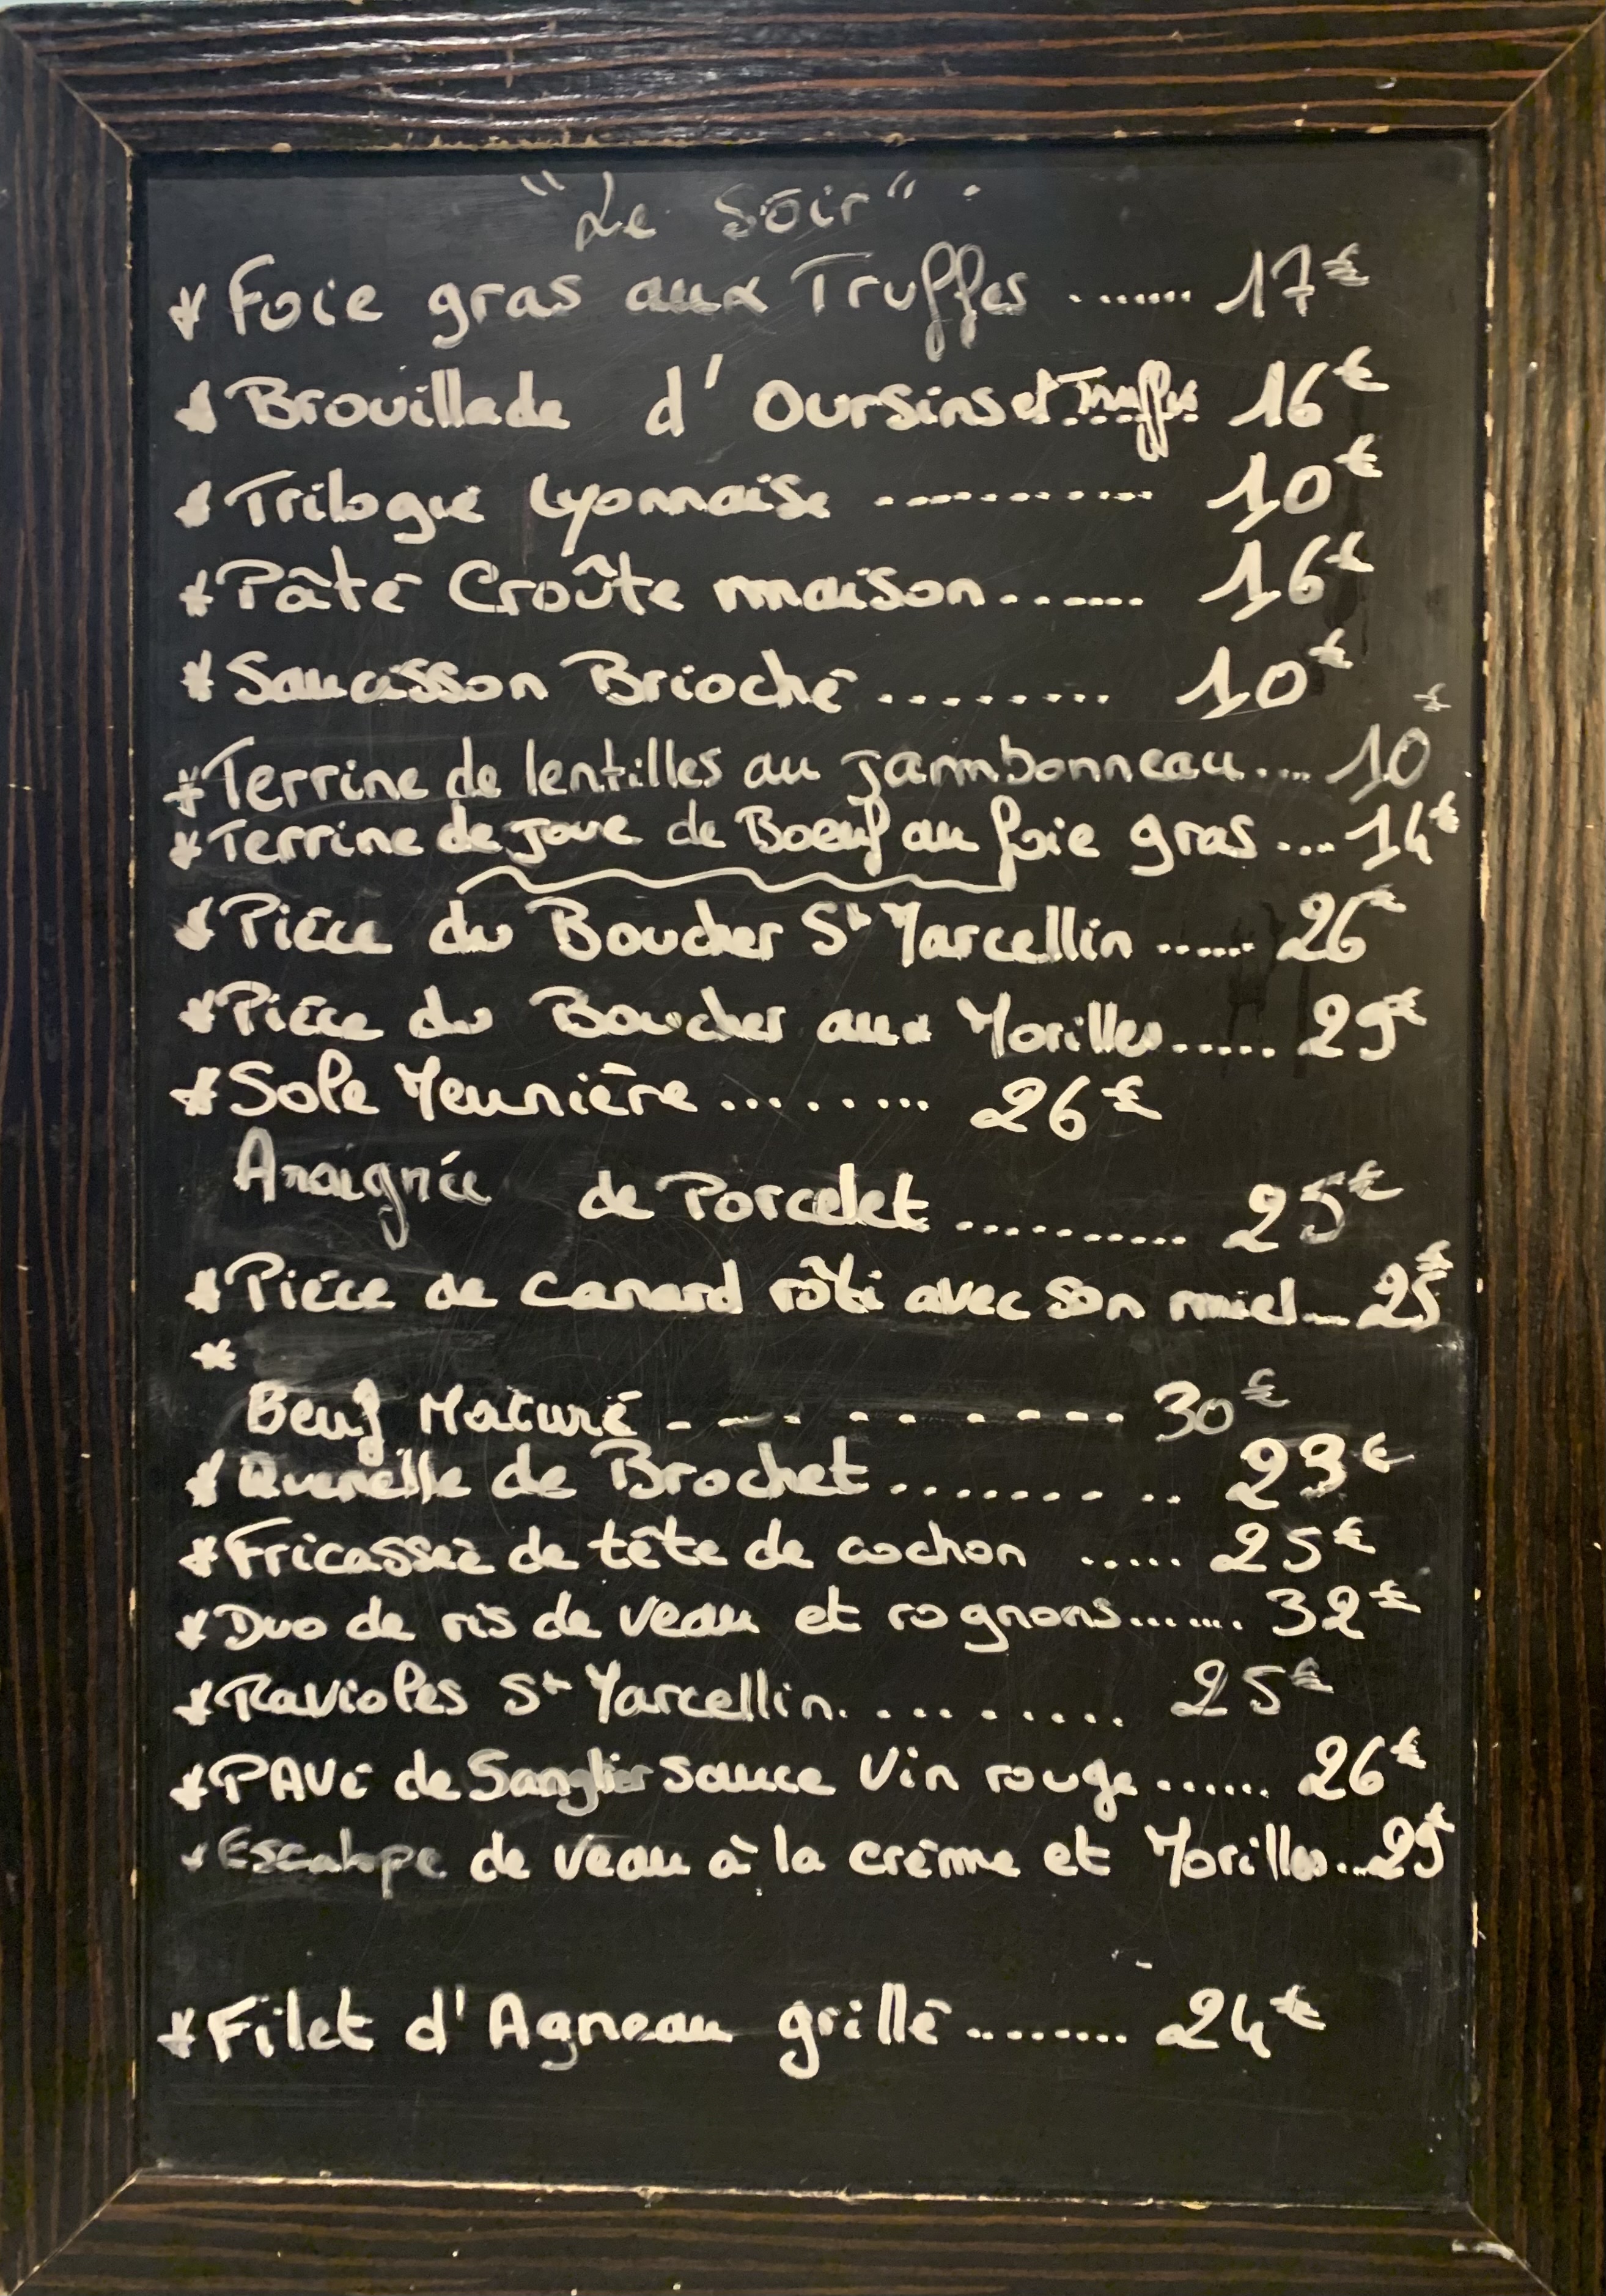 "Le Soir"
* Foie gras aux Truffes ....... 17€
* Brouillade d'Oursins et Truffes 16€
* Trilogie Lyonnaise ........... 10€
* Pâté Croûte maison ...... 16€
* Saucisson Brioché ........ 10€
* Terrine de lentilles au jambonneau .... 10€
* Terrine de joue de Boeuf au foie gras ... 14€
* Pièce du Boucher St Marcellin ...... 26€
* Pièce du Boucher aux Morilles ..... 29€
* Sole Meunière ........ 26€
Araignée de Porcelet .......... 25€
* Pièce de Canard rôti avec son miel ... 25€
*
Beuf Maturé - - - - - - - - - 30€
* Quenelle de Brochet .......... 23€
* Fricassée de tête de cochon ..... 25€
* Duo de ris de veau et rognons ....... 32€
* Ravioles St Marcellin ......... 25€
* PAVé de Sanglier sauce Vin rouge ...... 26€
* Escalope de veau à la crème et Morilles ... 29€
* Filet d'Agneau grillé ........ 24€